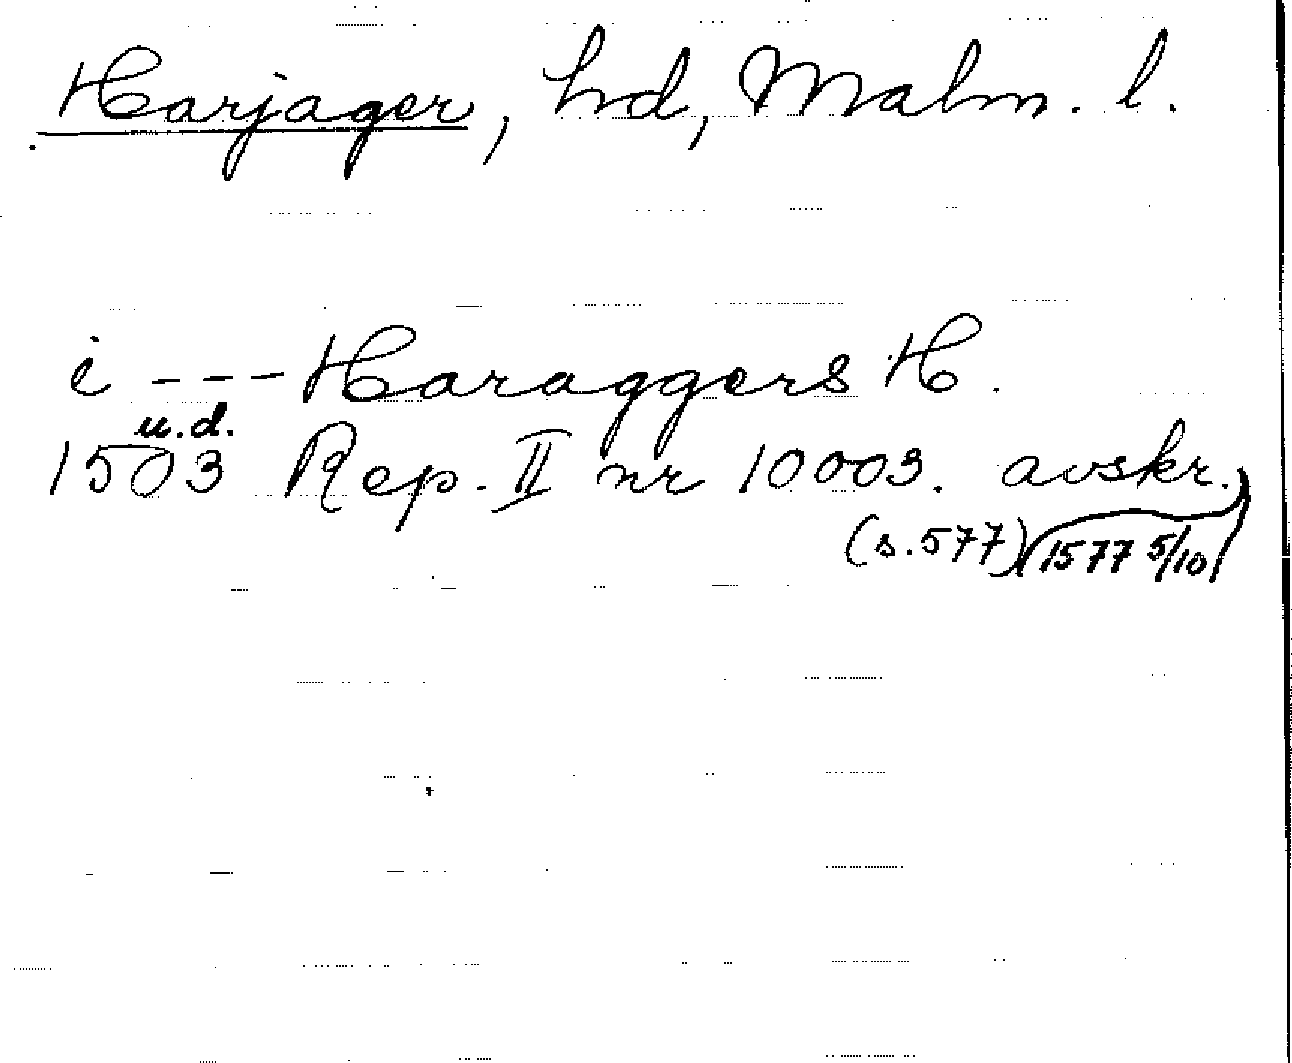 Harjager, hd, Malm. l.
i --- Haraggers H.
u.d.
1503 Rep. II nr 10003. avskr.
(s. 577) 1577 5/10